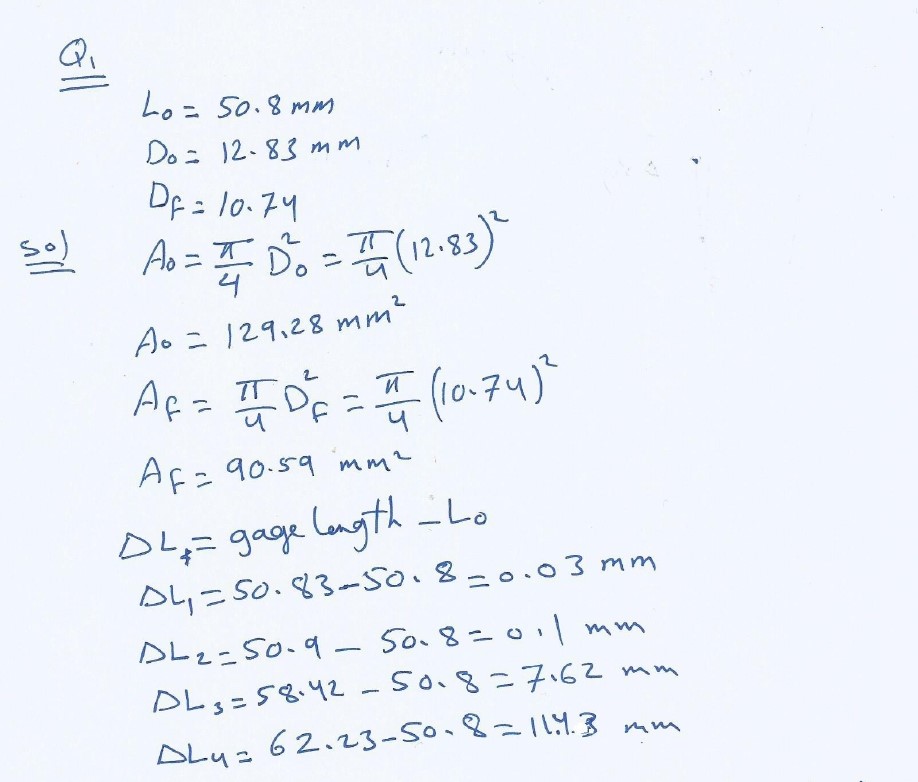 Q1
L₀ = 50.8 mm
D₀ = 12.83 mm
DF = 10.74
sol
A₀ = π/4 D₀² = π/4 (12.83)²
A₀ = 129.28 mm²
AF = π/4 DF² = π/4 (10.74)²
AF = 90.59 mm²
ΔL = gage length - L₀
ΔL₁ = 50.83 - 50.8 = 0.03 mm
ΔL₂ = 50.9 - 50.8 = 0.1 mm
ΔL₃ = 58.42 - 50.8 = 7.62 mm
ΔL₄ = 62.23 - 50.8 = 11.43 mm